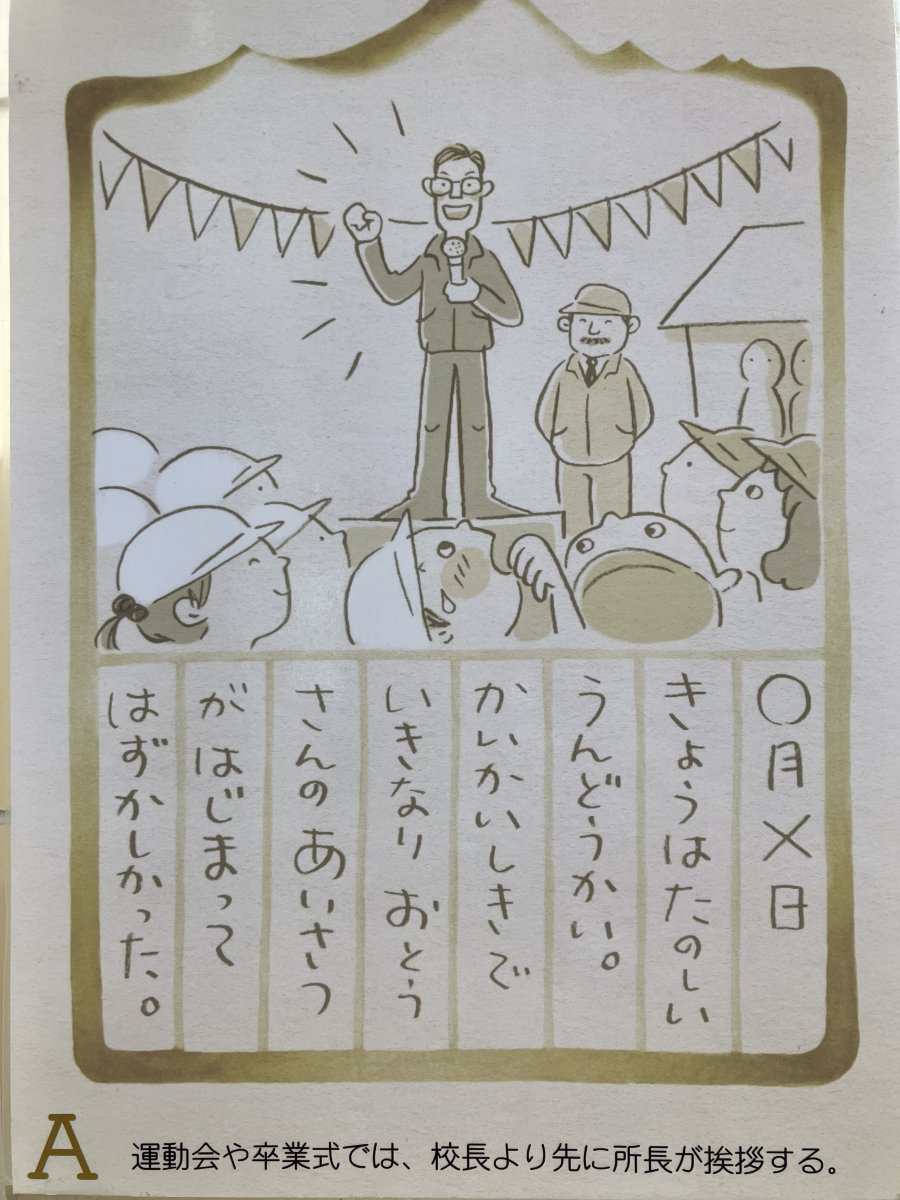 〇月×日
きょうはたのしい
うんどうかい。
かいかいしきで
いきなりおとう
さんのあいさつ
がはじまって
はずかしかった。
A
運動会や卒業式では、校長より先に所長が挨拶する。